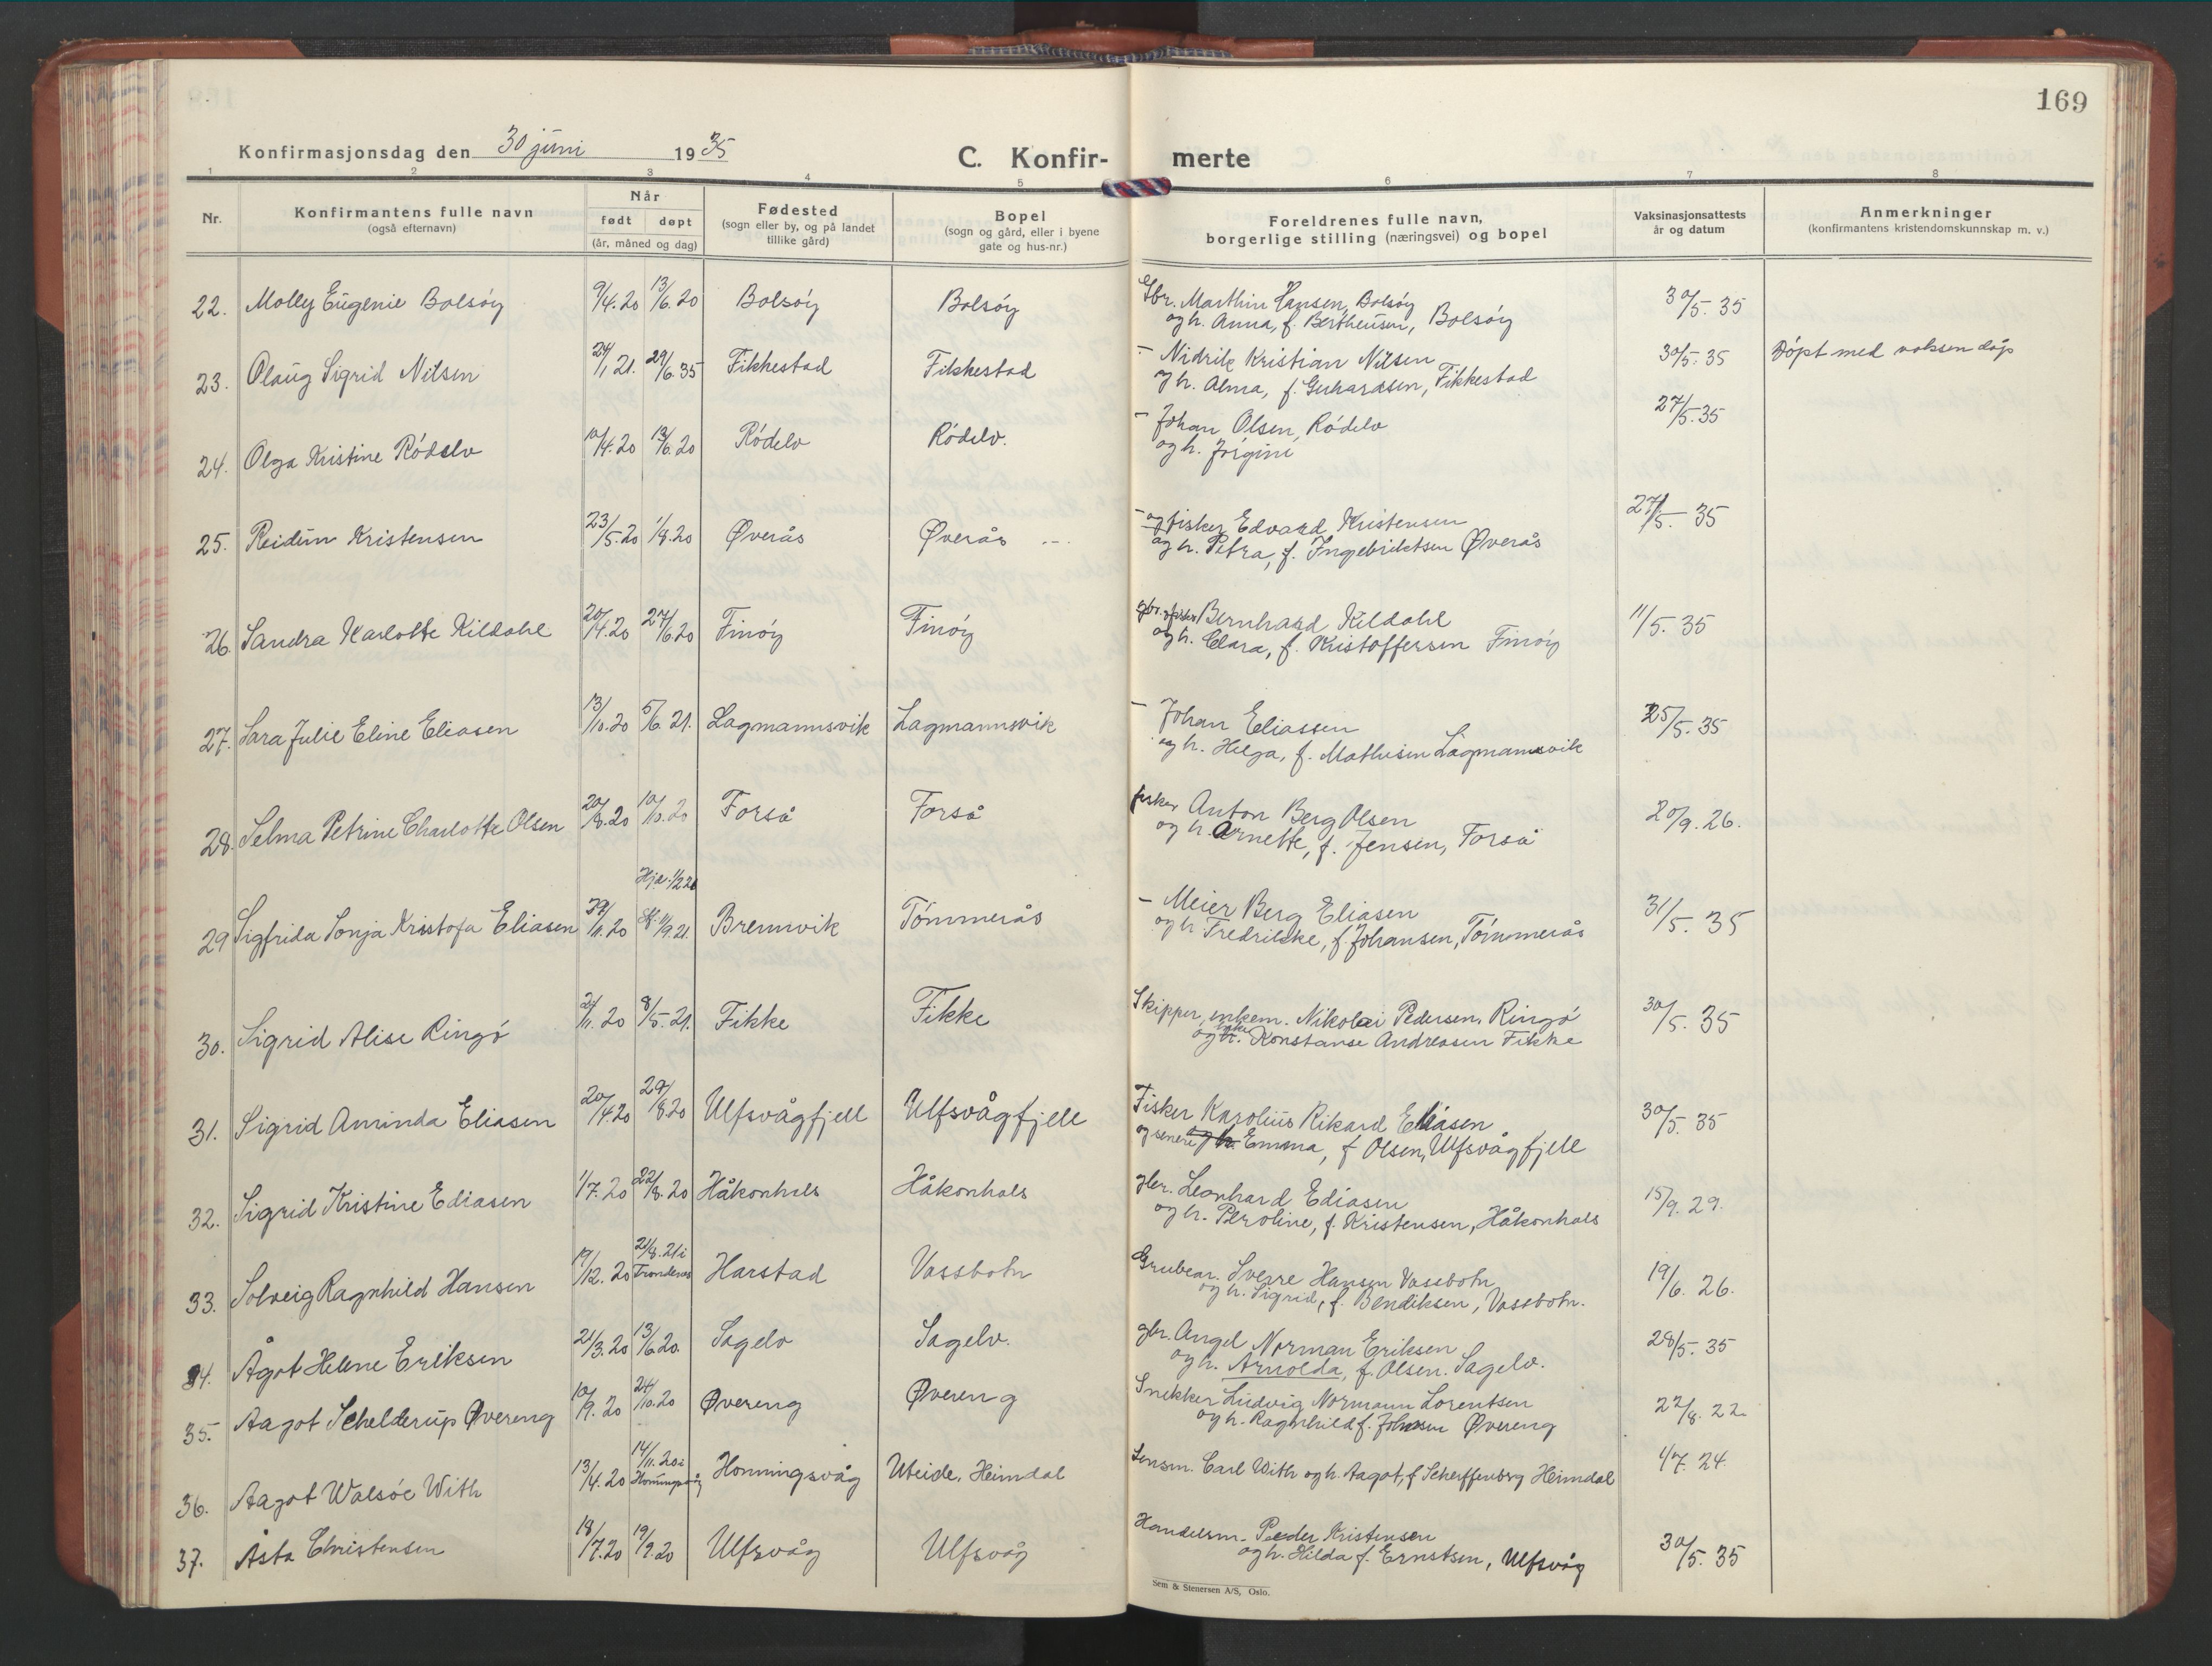 169
Konfirmasjonsdag den 30 juni 1935
C. Konfir- merte
1 2 3 4 5 6 7 8
Nr. Konfirmantens fulle navn (også efternavn) Når født døpt (år, måned og dag) Fødested (sogn eller by, og på landet tillike gård) Bopel (sogn og gård, eller i byene gate og hus-nr.) Foreldrenes fulle navn, borgerlige stilling (næringsvei) og bopel Vaksinasjonsattests år og datum Anmerkninger (konfirmantens kristendomskunnskap m. v.)
22. Molly Eugenie Bolsöy 9/4.20 13/6.20 Bolsöy Bolsöy Gbr. Marthin Hansen, Bolsöy 30/5. 35
og h. Anna, f. Bertheusen, Bolsöy
23. Olaug Sigrid Nilsen 24/1 21. 29/6.35 Fikkestad Fikkestad - Nidrik Kristian Nilsen 30/5. 35 Döpt med voksen dåp
og h. Alma, f. Gerhardsen, Fikkestad
24. Olga Kristine Rödelv 10/4.20 13/6.20 Rödelv Rödelv. - Johan Olsen, Rödelv 27/5.35
og h. Jörgine
25. Reidun Kristensen 23/5.20 1/8.20 Øverås Øverås - og fisker Edvard Kristensen 27/5. 35
og h. Petra, f. Ingebriktsen Øverås
26. Sandra Karlotte Kildahl 20/4.20 27/6.20 Finöy Finöy gbr. og fisker Bernhard Kildahl 11/5. 35
og h. Clara, f. Kristoffersen Finöy
27. Sara Julie Eline Eliasen 13/10.20 5/6.21. Lagmannsvik Lagmannsvik - Johan Eliassen 25/5. 35
og h. Helga, f. Mathisen Lagmannsvik
28. Selma Petrine Charlotte Olsen 20/8.20 10/10.20 Forså Forså fisker Anton Berg Olsen 20/9. 26.
og h. Arnette, f. Jensen, Forså
Hjd. 1/2 21
29 Sigfrida Sonja Kristofa Eliasen 29/11.20 St. 11/9.21. Brennvik Tömmerås - Meier Berg Eliasen 31/5. 35
og h. Fredrikke, f. Johansen, Tömmerås
30. Sigrid Alise Ringö 21/11.20 8/5.21. Fikke Fikke Skipper, enkem. Nikolai Pedersen, Ringö 30/5. 35
og h. enke Konstanse Andreasen Fikke
31. Sigrid Aminda Eliasen 20/4.20 29/8.20 Ulfsvågfjell Ulfsvågfjell Fisker Karolius Rikard Eliasen 30/5. 35
og senere og h. Emma, f Olsen, Ulfsvågfjell
32. Sigrid Kristine Ediasen 1/7.20 22/8.20 Håkonhals Håkonhals gbr. Leonhard Ediasen 15/9. 29.
og h. Peroline, f. Kristensen, Håkonhals
33. Solveig Ragnhild Hansen 17/12.20 21/8.21 i Trondenes Harstad Vassbotn Grubear. Sverre Hansen Vassbotn 19/6. 26.
og h. Sigrid, f. Bendiksen, Vassbotn.
34. Ågot Helene Eriksen 21/3.20 13/6.20. Sagelv Sagelv. gbr. Angel Norman Eriksen 28/5. 35
og h. Arnolda, f. Olsen. Sagelv.
35. Aagot Schelderup Øvereng 10/9.20 24/10.20 Øvereng Øvereng Snekker Ludvig Normann Lorentsen 22/8. 22
og h. Ragnhild f. Johnsen Øvereng
36. Aagot Walsöe With 13/4.20 14/11.20 i Honningsvåg Honningsvåg Uteide, Heimdal Lensm. Carl With og h. Aagot, f Scherffenberg Heimdal 1/7. 24.
37. Åsta Christensen 18/7.20 19/9.20 Ulfsvåg Ulfsvåg Handelsm. Peder Kristensen 30/5. 35
og h. Hilda f. Ernstsen, Ulfsvåg
Sem & Stenersen A/S, Oslo.